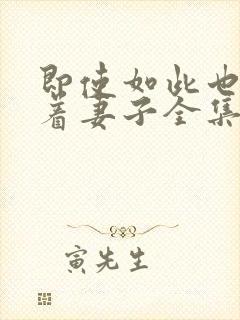 即使如此也
着妻子全集
寅先生